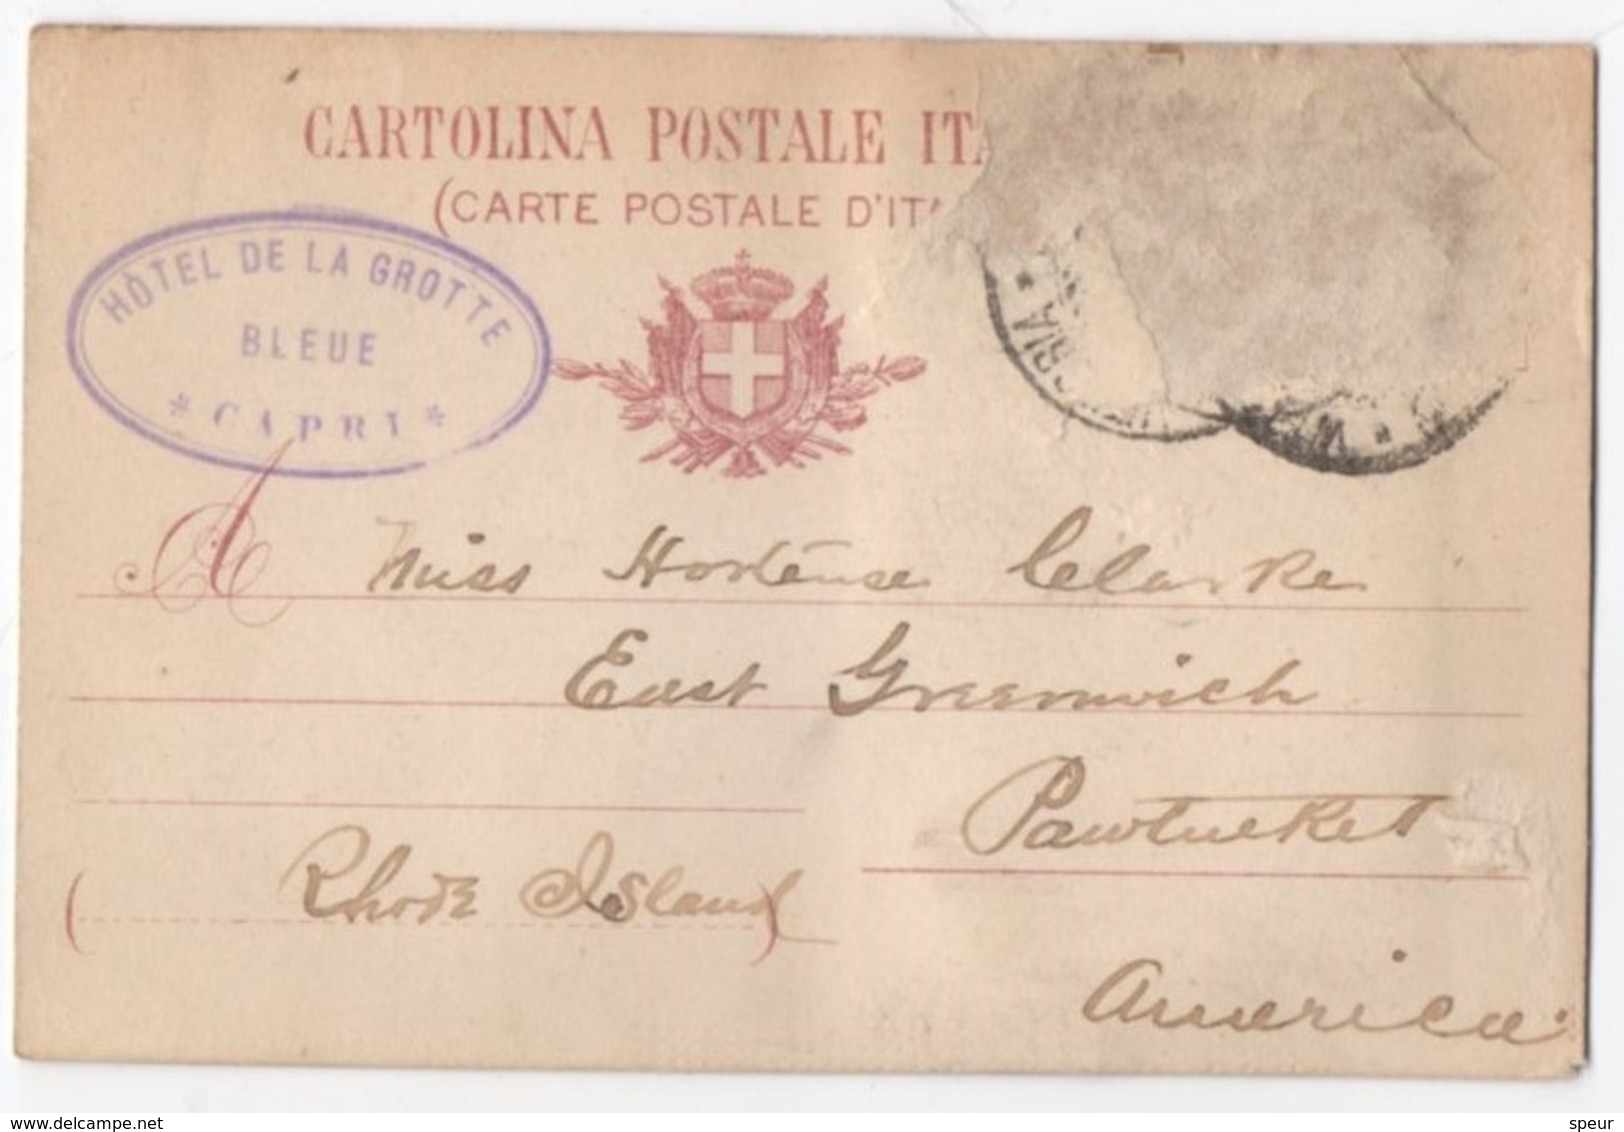 CARTOLINA POSTALE ITA
(CARTE POSTALE D'ITA
HÔTEL DE LA GROTTE
BLEUE
* CAPRI *
A Miss Hortense Clarke
East Greenwich
Pawtucket
(Rhode Island)
America
www.delcampe.net
speur